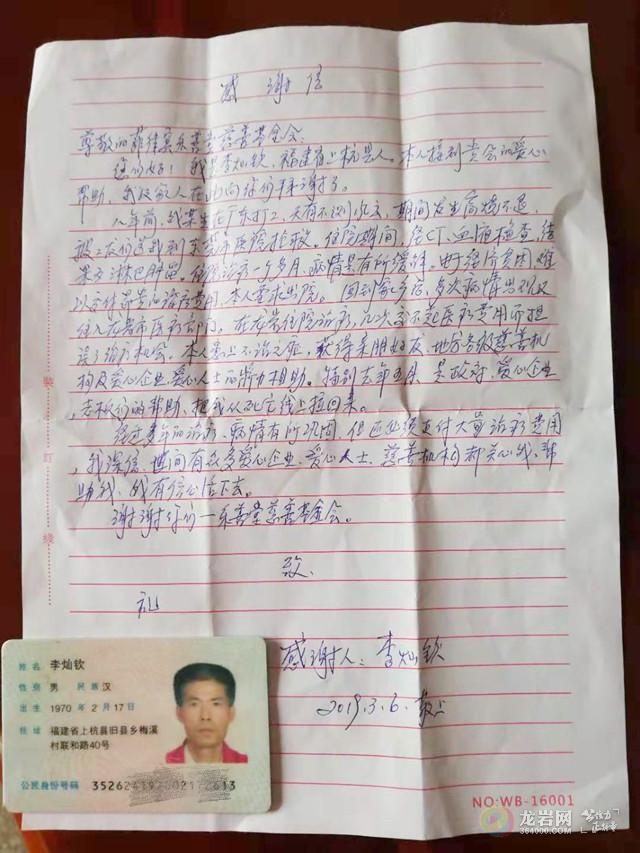 感谢信
尊敬的菲律宾乐善堂慈善基金会:
您们好!我是李灿钦,福建省上杭县人。本人接到贵会的爱心
帮助,我及家人在此向你们拜谢了。
八年前,我某生在广东打工,突有不识,期间发生高烧不退,
被工友们送我到东莞市医院抢救。住院期间,经CT、血液检查,结
果为淋巴肿瘤。住院治疗一个多月,病情虽有所缓解。由于经济贫困,难
以支付昂贵的诊疗费用,本人要求出院。回到家乡后,多次病情出现反
住入龙岩市医疗部门。在龙岩住院治疗,几次交不起医疗费用而担
误了治疗机会。本人患上不治之症,获得亲朋好友、地方各级慈善机
构及爱心企业、爱心人士的鼎力相助。特别去年五月,是政府、爱心企业
、乡权们的帮助,把我从死亡线上拉回来。
经过多年的治疗,病情有所巩固,但还必须支付大量治疗费用
,我深信,世间有众多爱心企业、爱心人士、慈善机构都关心我、帮
助我,我有信心活下去。
谢谢你们—乐善堂慈善基金会。
致
礼
感谢人:李灿钦
2019.3.6.敬上
装
订
线
姓名 李灿钦
性别 男 民族 汉
出生 1970 年 2 月 17 日
住址 福建省上杭县旧县乡梅溪
村联和路40号
公民身份号码
NO:WB-16001
龙岩网
364000.com